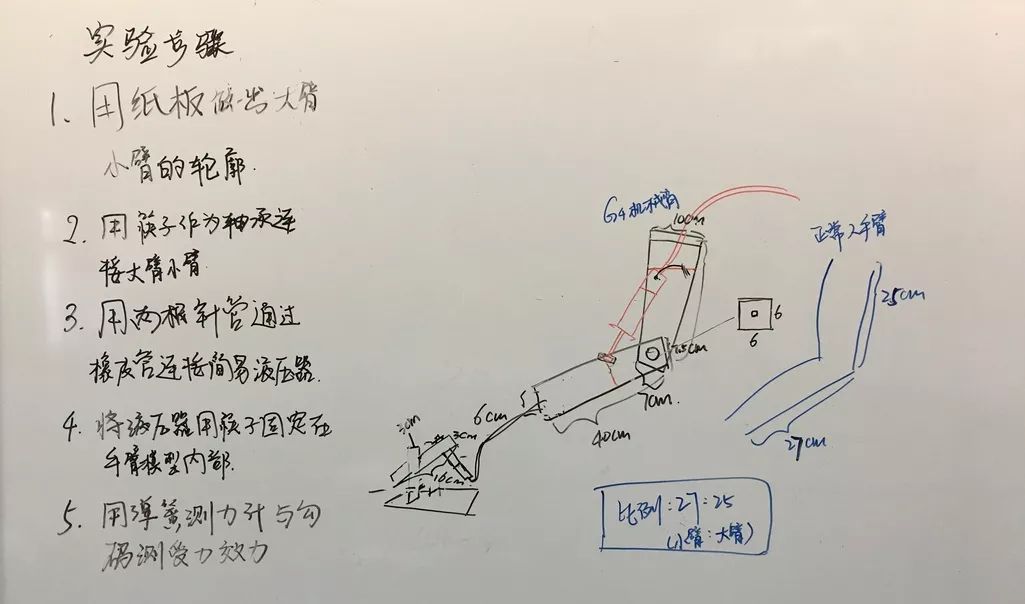 实验步骤
1. 用纸板做出大臂
小臂的轮廓.
2. 用筷子作为轴承连
接大臂小臂.
3. 用两根针管通过
橡皮管连接简易液压器.
4. 将液压器用筷子固定在
手臂模型内部.
5. 用弹簧测力计与勾
码测受力效力
G4机械臂
10cm
7.5cm
7cm.
40cm
6cm
3cm
3cm
10cm
6
6
正常人手臂
25cm
27cm
比例:27:25
(小臂:大臂)